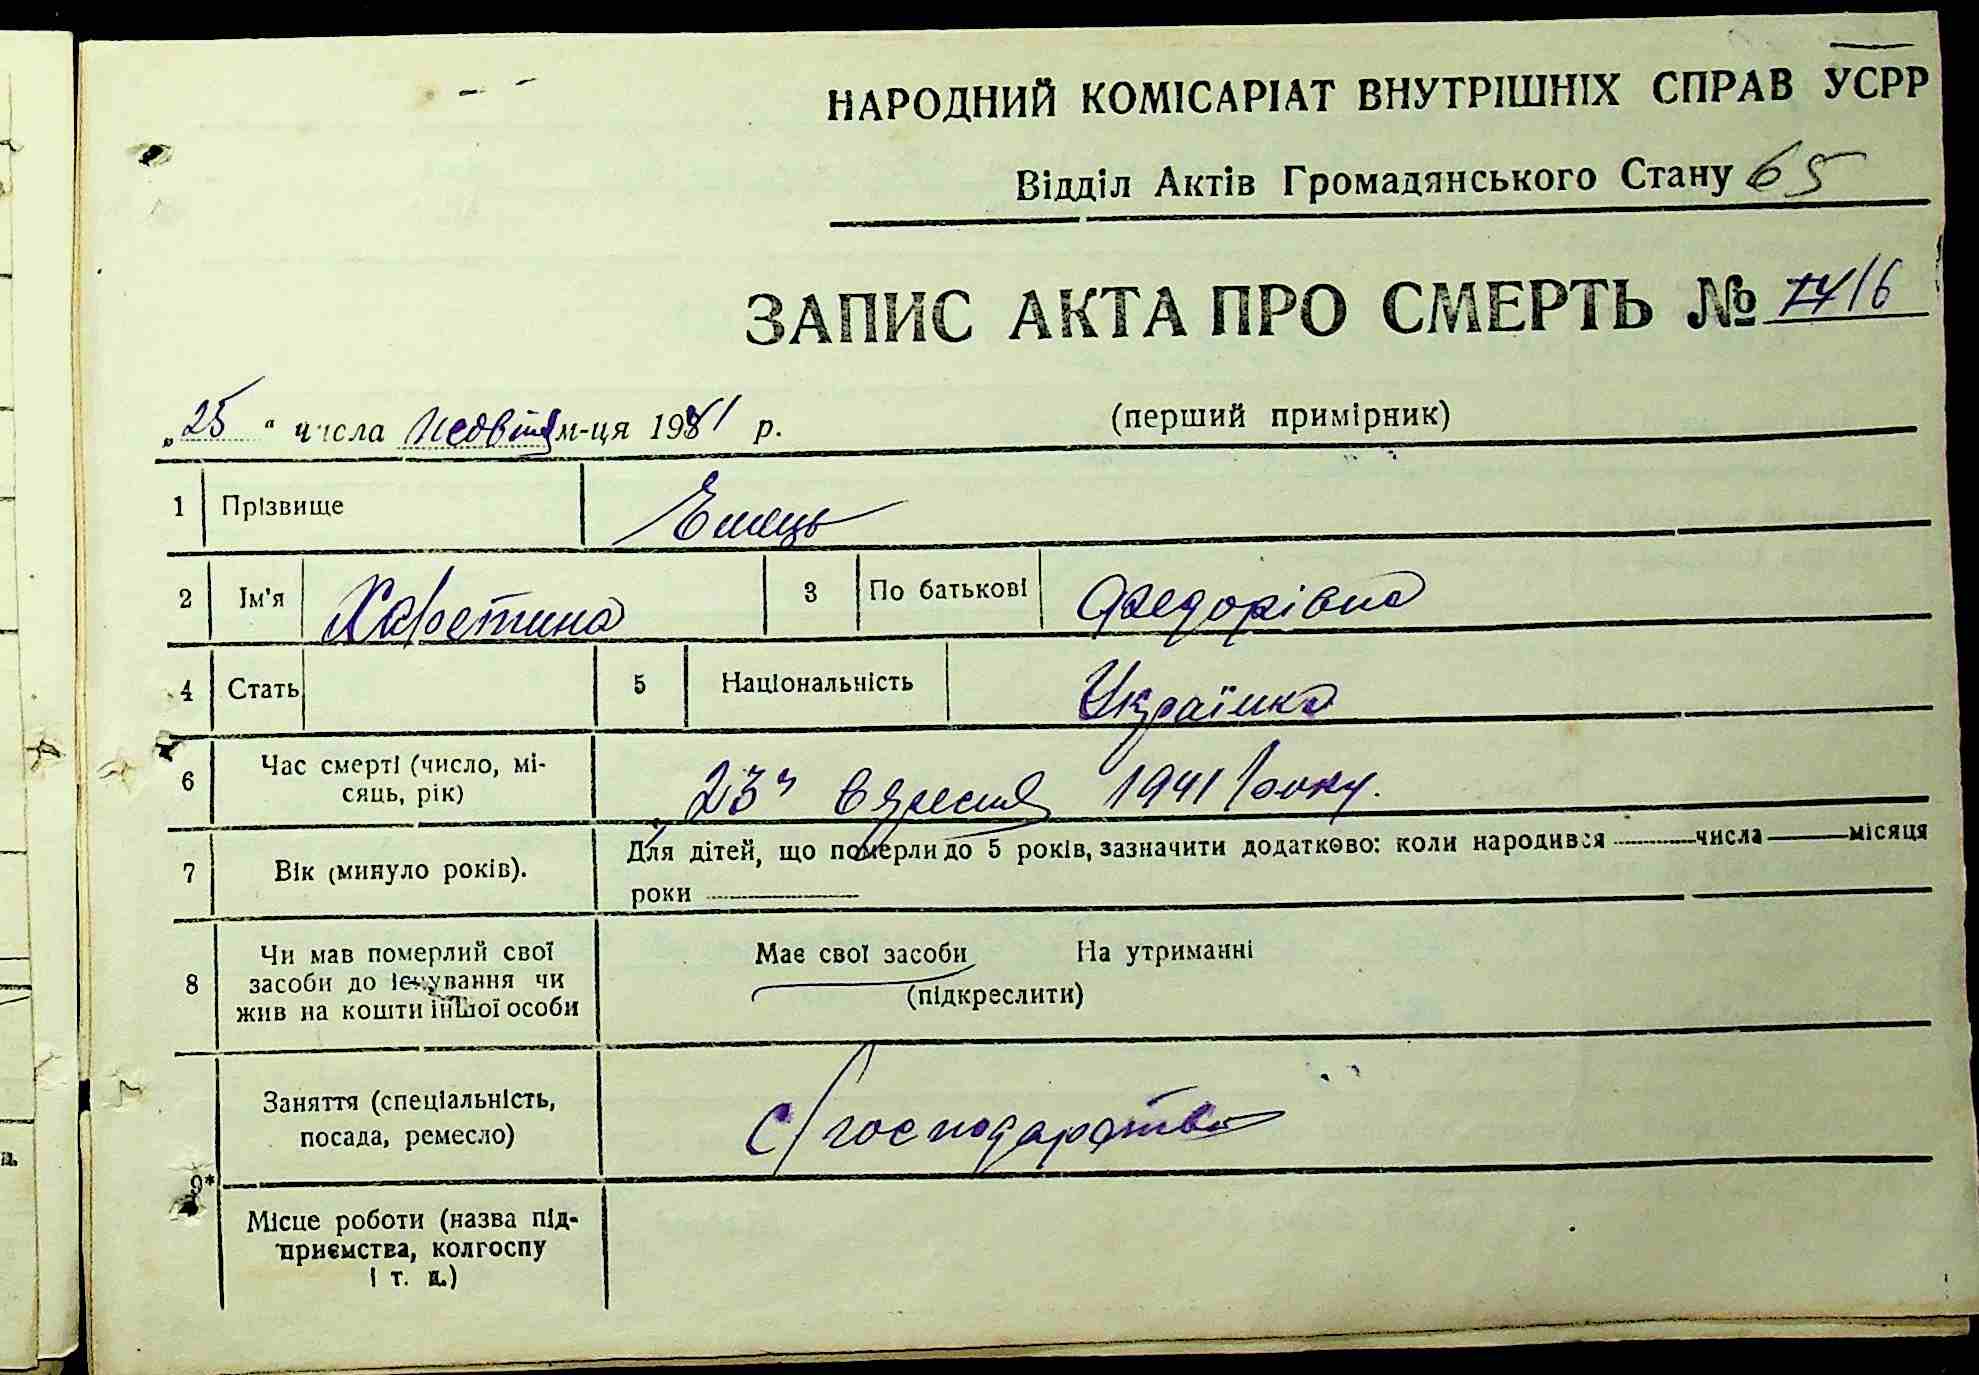 НАРОДНИЙ КОМІСАРІАТ ВНУТРІШНІХ СПРАВ УСРР
Відділ Актів Громадянського Стану 65
ЗАПИС АКТА ПРО СМЕРТЬ № 16
„25“ числа м-ця 1941 р.
(перший примірник)
1 Прізвище Емець
2 Ім'я Харетина 3 По батькові Федорівна
4 Стать 5 Національність Українка
6 Час смерті (число, мі-
сяць, рік)
23 вересня 1941 року.
7 Вік (минуло років).
Для дітей, що померли до 5 років, зазначити додатково: коли народився числа місяця
роки
8 Чи мав померлий свої
засоби до існування чи
жив на кошти іншої особи
Має свої засоби На утриманні
(підкреслити)
9*
Заняття (спеціальність,
посада, ремесло)
с/господарство
Місце роботи (назва під-
приємства, колгоспу
і т. д.)